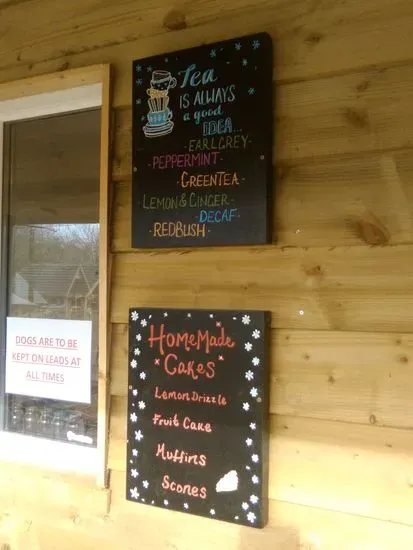 Tea
IS ALWAYS
a good
IDEA...
- EARL GREY -
- PEPPERMINT -
- GREEN TEA -
- LEMON & GINGER -
- DECAF -
- REDBUSH -
HomeMade
Cakes
Lemon Drizzle
Fruit Cake
Muffins
Scones
DOGS ARE TO BE
KEPT ON LEADS AT
ALL TIMES